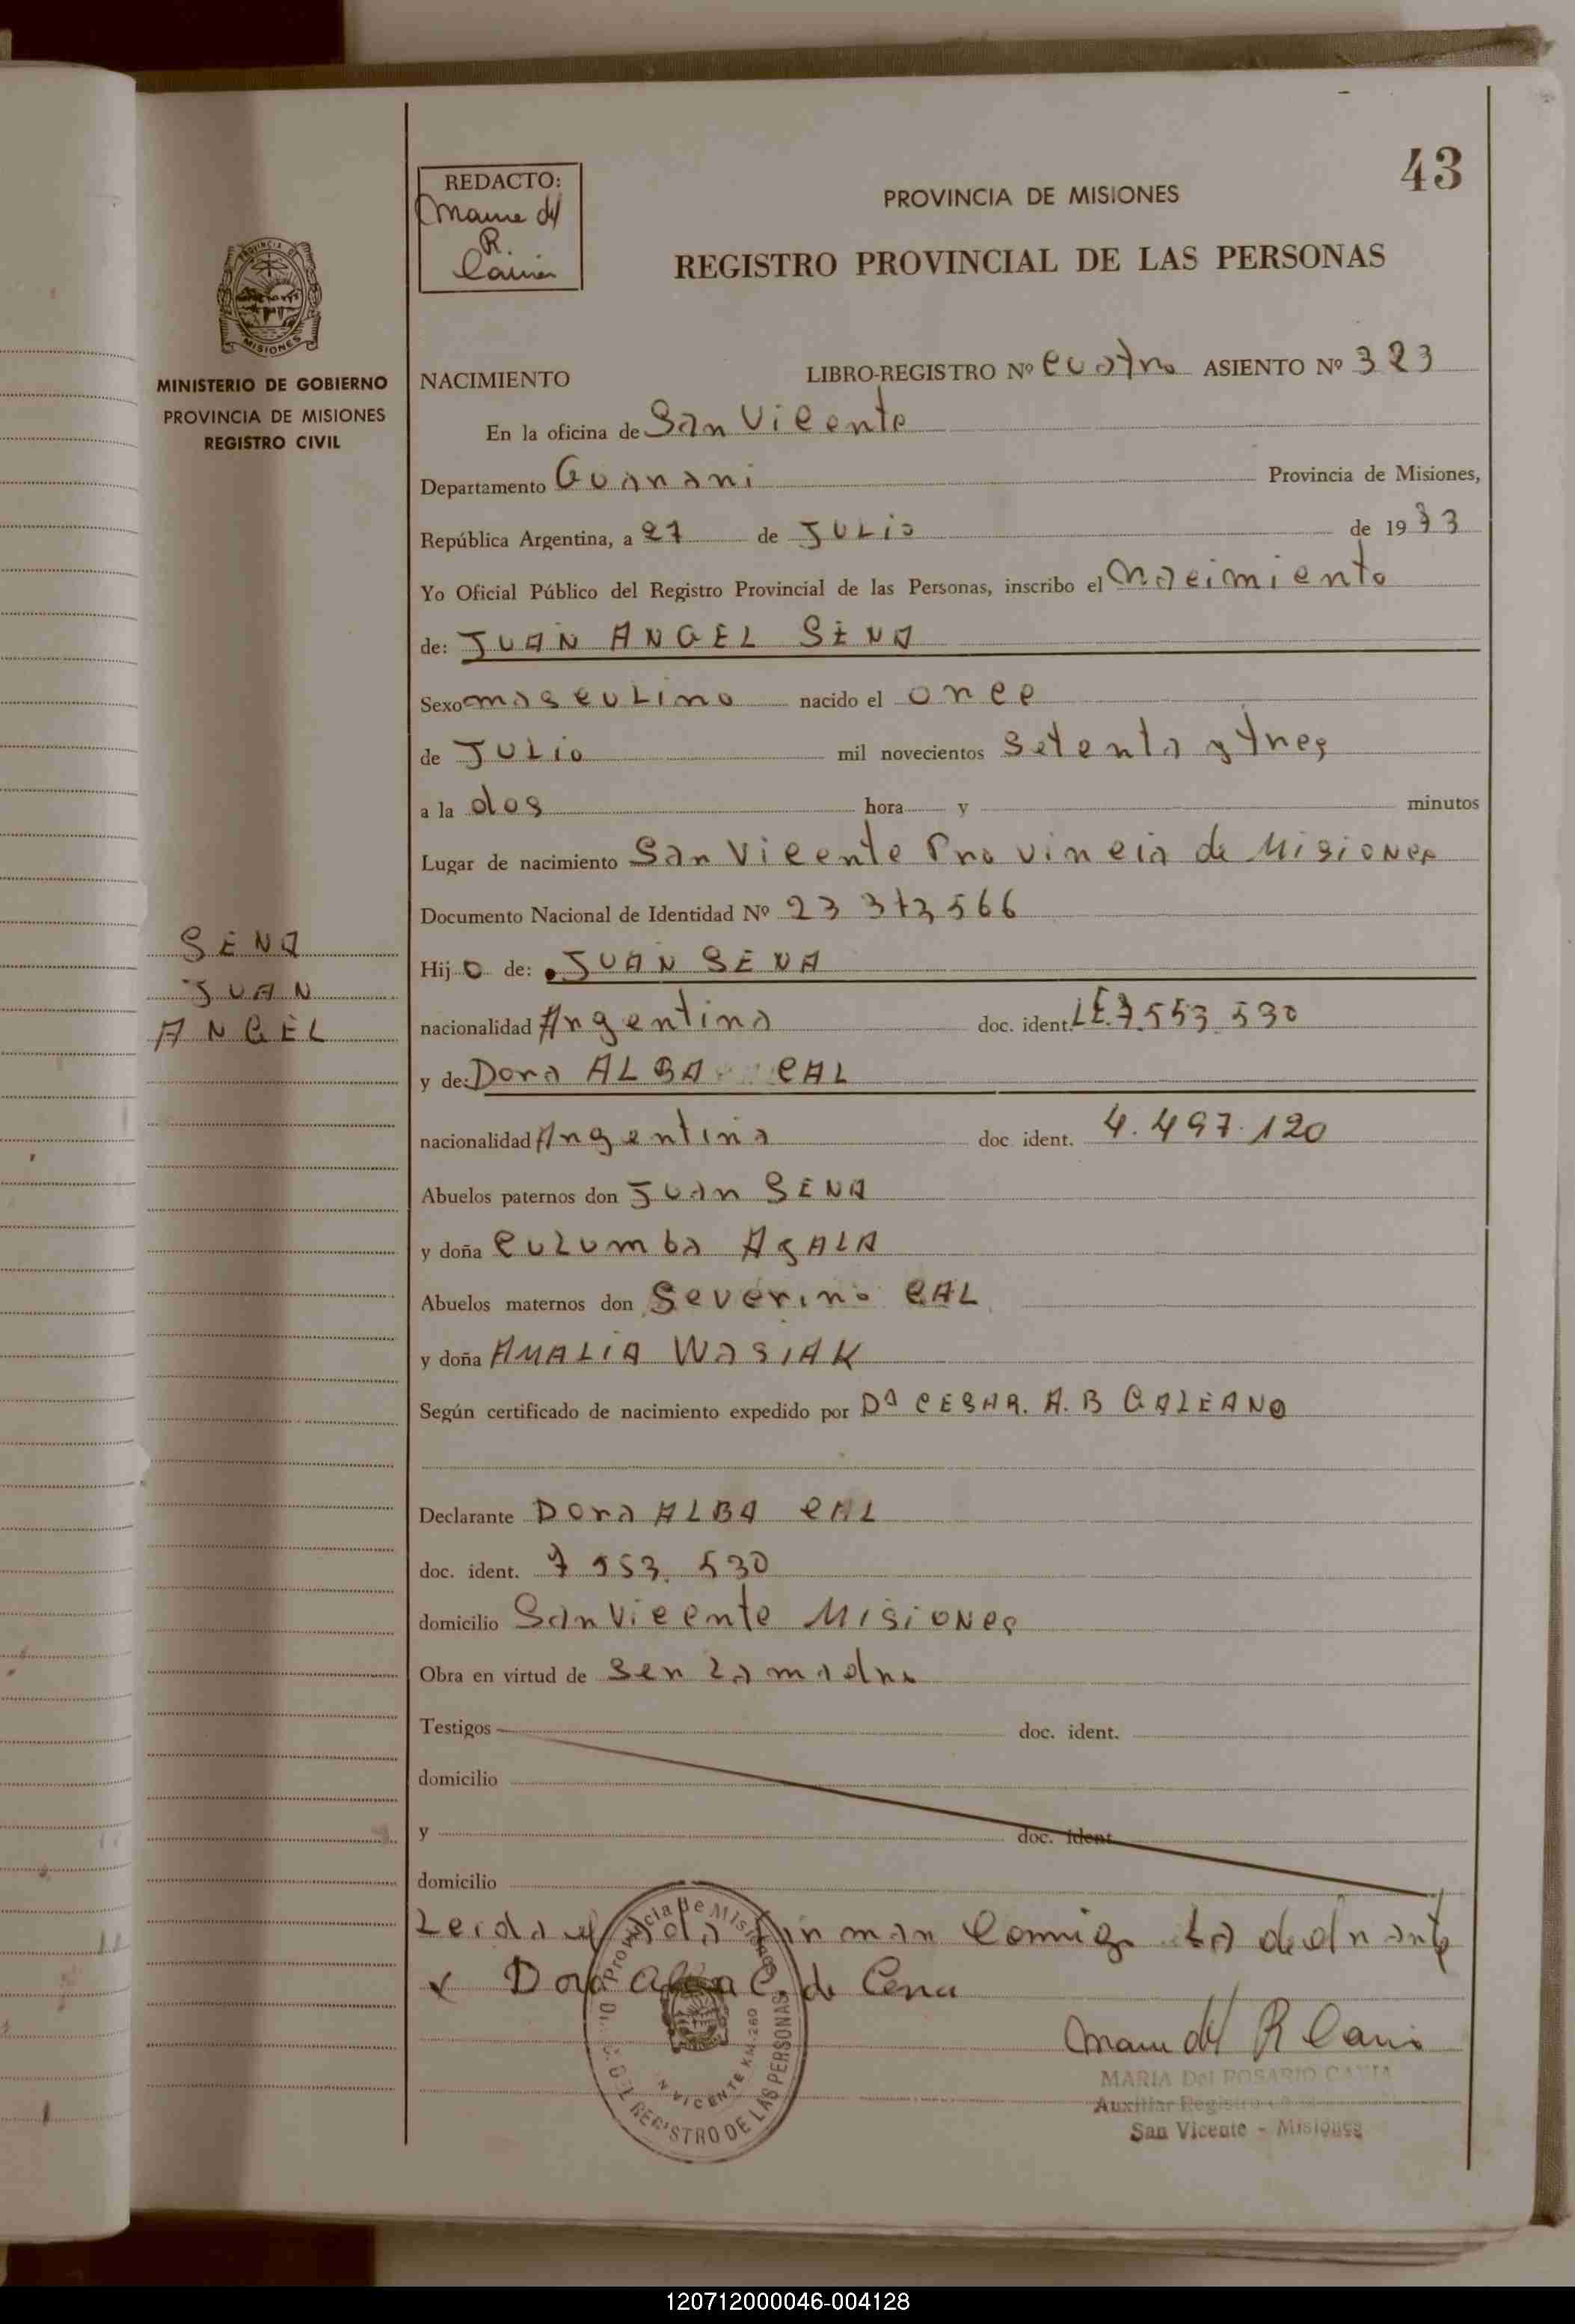 43
REDACTO:
R.
PROVINCIA DE MISIONES
REGISTRO PROVINCIAL DE LAS PERSONAS
PROVINCIA DE
MISIONES
MINISTERIO DE GOBIERNO
PROVINCIA DE MISIONES
REGISTRO CIVIL
NACIMIENTO LIBRO-REGISTRO Nº cuatro ASIENTO Nº 323
En la oficina de San Vicente
Departamento Guarani Provincia de Misiones,
República Argentina, a 27 de JULio de 1973
Yo Oficial Público del Registro Provincial de las Personas, inscribo el nacimiento
de: JUAN ANGEL SENA
Sexo masculino nacido el once
de JULio mil novecientos setenta y tres
a la dos hora y minutos
Lugar de nacimiento San Vicente Provincia de Misiones
Documento Nacional de Identidad Nº 23 373 566
SENA
JUAN
ANGEL
Hijo de: JUAN SENA
nacionalidad Argentina doc. ident. LE.7.553 530
y de: Dora ALBA CAL
nacionalidad Argentina doc. ident. 4.497.120
Abuelos paternos don Juan SENA
y doña Culumba AyALA
Abuelos maternos don Severino CAL
y doña AMALIA WASIAK
Según certificado de nacimiento expedido por CESAR. A. B GALEANO
Declarante Dora ALBA CAL
doc. ident. 7 553. 530
domicilio San Vicente Misiones
Obra en virtud de Ser La madre
Testigos doc. ident.
domicilio
y doc. ident.
domicilio
Leida el firman Comigo La
x Dora de Cena
Provincia de Misiones
DEL REGISTRO DE LAS PERSONAS
VICENTE KM. 260
MARIA Del ROSARIO CAVIA
Auxiliar Registro
San Vicente - Misiones
120712000046-004128